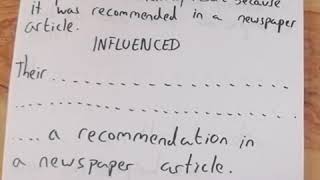 because
it was recommended in a newspaper
article.
INFLUENCED
Their ..................
..............................
.... a recommendation in
a newspaper article.